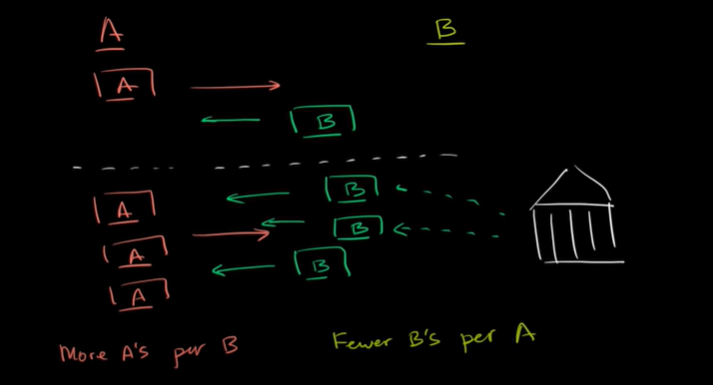 A
B
A
B
A
B
A
B
A
B
More A's per B
Fewer B's per A